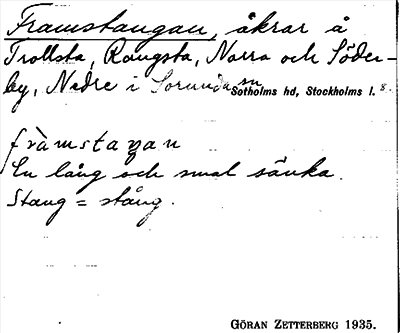 Framstangan, åkrar å
Trollsta, Rangsta, Norra och Söder-
by, Nedre i Sorunda sn
Sotholms hd, Stockholms l.
främstaŋan
En lång och smal sänka.
Stang = stång.
GÖRAN ZETTERBERG 1935.